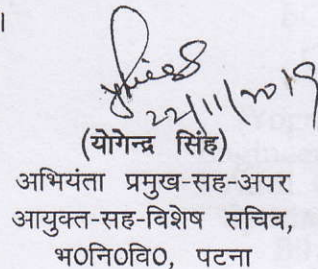 ।
22/11/2019
(योगेन्द्र सिंह)
अभियंता प्रमुख-सह-अपर
आयुक्त-सह-विशेष सचिव,
भ0नि0वि0, पटना